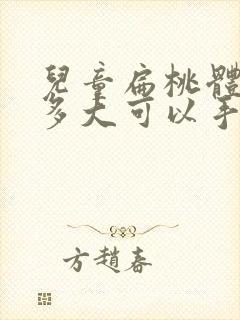 兒童扁桃體
多大可以手
方趙春